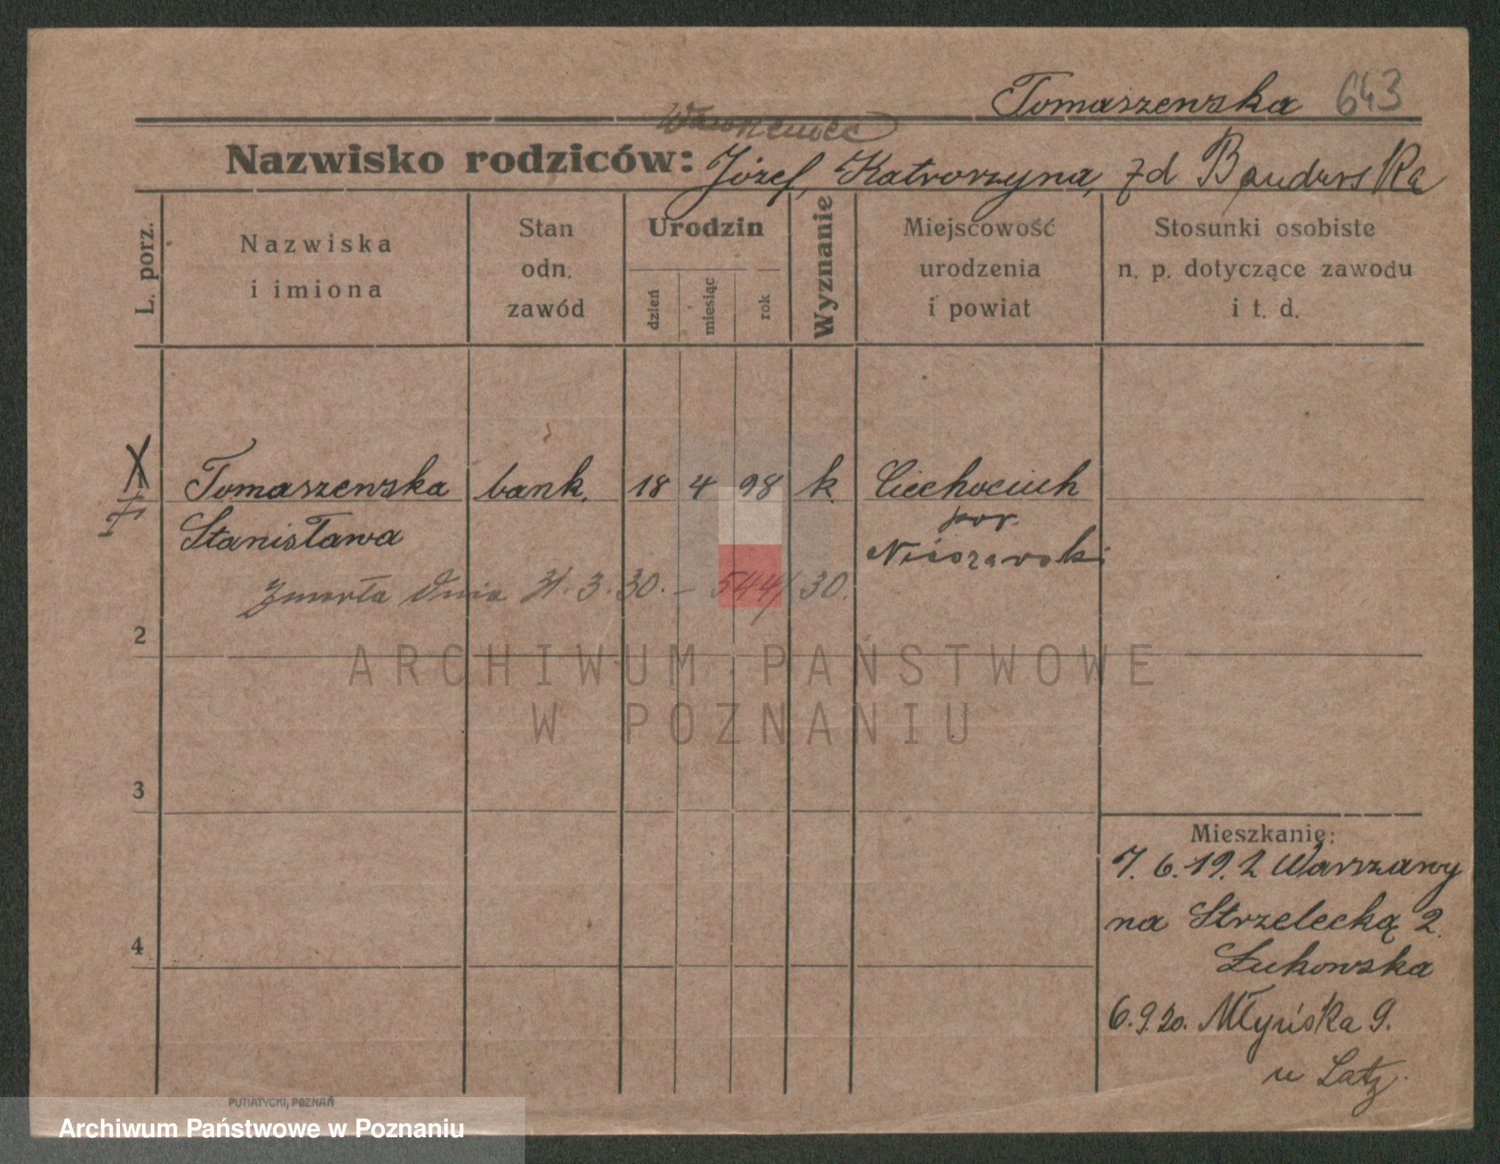 Tomaszewska 643
Nazwisko rodziców: Józef, Katrorzyna, zd Bandurska
L. porz.
Nazwiska
i imiona
Stan
odn.
zawód
Urodzin
dzień
miesiąc
rok
Wyznanie
Miejscowość
urodzenia
i powiat
Stosunki osobiste
n. p. dotyczące zawodu
i t. d.
Tomaszewska bank. 18 4 98 k. Ciechociuk
Stanisława pow.
Nieszawski
Zmarła dnia 31.3.30. – 544/30.
2
ARCHIWUM PAŃSTWOWE
W POZNANIU
3
4
Mieszkanie:
7.6.19. z Warszawy
na Strzelecką 2.
Łukowska
6.9.20. Młyńska 9.
u Latz.
PUTIATYCKI, POZNAŃ
Archiwum Państwowe w Poznaniu